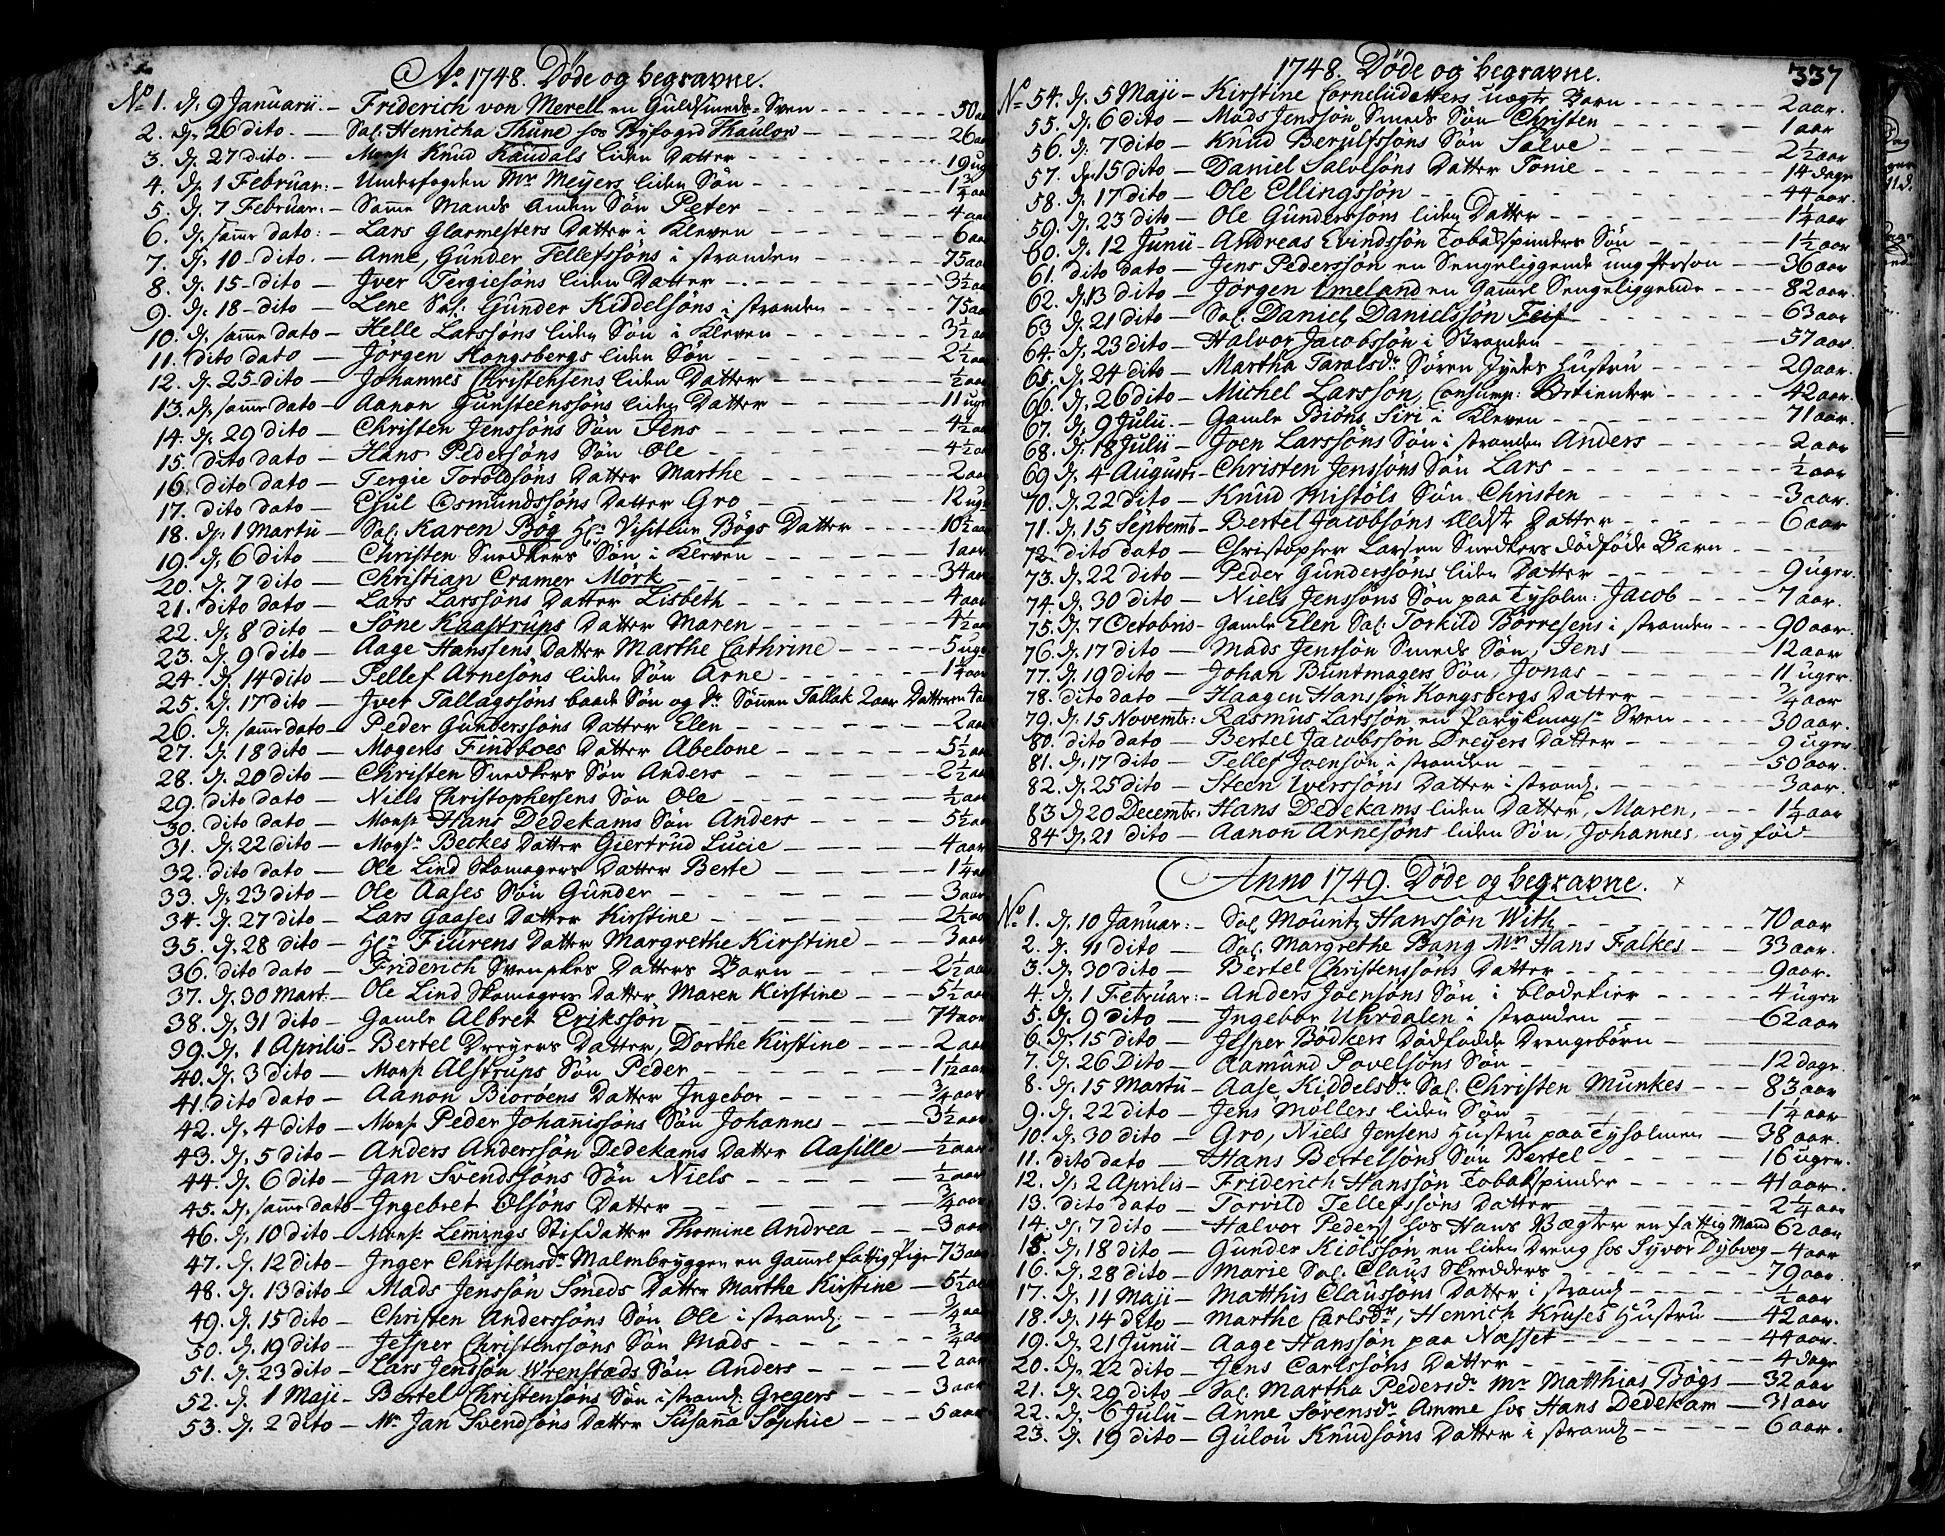 Ao 1748. Døde og begravne.
No 1. d. 9 Januarii – Friderich von Merell en Guldsmeds-Sven – 50 aar
2. d. 26 dito – Sal: Henricha Thune hos Byfoged Thaulow – 26 aar
3. d. 27 dito – Monsr Knud Raudals liden Datter – 19 ug
4. d. 1 Februar: – Underfogden Mr Meyers liden Søn – 1 3/4 aar
5. d. 7 Februar: – Samme Mands Søn Peter – 4 aar
6. d. samme dato: – Lars Glarmesters Datter i Kleven – 6 aar
7. d. 10 dito – Anne, Gunder Tellefssøns i stranden – 75 aar
8. d. 15 dito – Jver Tergiesøns liden Datter – 3 1/2 aar
9. d. 18 dito – Lene Sal: Gunder Kiddelsøns i stranden – 75 aar
10. d. samme dato – Helle Larssøns liden Søn i Kleven – 3 1/2 aar
11. dito dato – Jørgen Hongsbergs liden Søn – 2 1/2 aar
12. d. 25 dito – Johannes Christensens liden Datter – 1/2 aar
13. d. samme dato – Aanon Gunsteenssøns liden Datter – 11 uger
14. d. 29 dito – Christen Jenssøns Søn Jens – 4 1/2 aar
15. dito dato – Hans Pedersøns Søn Ole – 4 1/2 aar
16. dito dato – Tergie Toroldsøns Datter Marthe – 2 aar
17. dito dato – Eyul Osmundssøns Datter Gro – 12 uger
18. d. 1 Martii – Sal: Karen Bøg Hr Visiteur Bøgs Datter – 10 1/2 aar
19. d. 6 dito – Christen Snedkers Søn i Kleven – 1 aar
20. d. 7 dito – Christian Cramer Mörk – 34 aar
21. dito dato – Lars Larssøns Datter Lisbeth – 4 aar
22. d. 8 dito – Søne Kaastrups Datter Maren – 4 1/2 aar
23. d. 9 dito – Aage Hanssens Datter Marthe Cathrine – 5 uger
24. d. 14 dito – Tellef Arnesøns liden Søn Arne – 1 1/4 aar
25. d. 17 dito – Jver Tallagssøns baade Søn og Dr Sønnen Tallak 2 aar Datteren 4 aar
26. d. samme dato – Peder Gunberssøns Datter Elen – 2 aar
27. d. 18 dito – Mogens Findboes Datter Abelone – 5 1/2 aar
28. d. 20 dito – Christen Snedkers Søn Anders – 2 1/2 aar
29. dito dato – Niels Christophersens Søn Ole – 1/2 aar
30. dito dato – Monsr Hans Dedekams Søn Anders – 5 1/2 aar
31. d. 22 dito – Monsr Beckes Datter Giertrud Lucie – 4 aar
32. dito dato – Ole Lind Skomagers Datter Berte – 1 1/4 aar
33. d. 23 dito – Ole Aases Søn Gunder – 3 aar
34. d. 27 dito – Lars Gaases Datter Kirstine – 2 1/2 aar
35. d. 28 dito – Hr Fiurens Datter Margrethe Kirstine – 3 aar
36. dito dato – Friderich Svenskes Datters Barn – 2 1/2 aar
37. d. 30 Mart: – Ole Lind Skomagers Datter, Maren Kirstine – 5 1/2 aar
38. d. 31 dito – Gamle Albret Eriksson – 74 aar
39. d. 1 Aprilis – Bertel Dreyers Datter, Dorthe Kirstine – 2 aar
40. d. 3 dito – Monsr Alstrups Søn Peder – 1 1/2 aar
41. dito dato – Aanon Biorøens Datter Jngebor – 3/4 aar
42. d. 4 dito – Monsr Peder Johannissøns Søn Johannes – 3 1/2 aar
43. d. 5 dito – Anders Anderssøn Dedekams Datter Aasille – 1/2 aar
44. d. 6 dito – Jan Svendssøns Søn Niels – 1/2 aar
45. d. samme dato – Jngebret Olsøns Datter – 3/4 aar
46. d. 10 dito – Monsr Lemings Stifdatter Thomine Andrea – 3 aar
47. d. 12 dito – Jnger Christensdr Malmbryggen en Gammel fattig Pige 73 aar
48. d. 13 dito – Mads Jenssøn Smeds Datter Marthe Kirstine – 5 1/2 aar
49. d. 15 dito – Christen Anderssøns Søn Ole i strand: – 3/4 aar
50. d. 19 dito – Jesper Christenssøns Søn Mads – 3/4 aar
51. d. 23 dito – Lars Jenssøn Wrenstads Søn Anders – 2 aar
52. d. 1 Maji – Bertel Christensøns Søn i strand: Gregers – 3 aar
53. d. 2 dito – Mr Jan Svendsøns Datter Susanna Sophie – 5 aar
1748. Døde og begravne. 337
No 54. d. 5 Maji – Kirstine Corneliidatters uægte Barn – 2 aar.
55. d. 6 dito – Mads Jenssøn Smeds Søn Christen – 1 aar
56. d. 7 dito – Knud Berulfssøns Søn Salve – 2 1/2 aar
57. d. 15 dito – Daniel Salvesøns Datter Tonie – 14 dage
58. d. 17 dito – Ole Ellingssøn – 44 aar.
59. d. 23 dito – Ole Gunderssøns liden Datter – 1 1/4 aar
60. d. 12 Junii – Andreas Evindssøn Tobakspinders Søn – 1 1/2 aar
61. dito dato – Jens Pederssøn en Sengeliggende ung Person – 36 aar
62. d. 13 dito – Jørgen Omeland en Gammel Sengeliggende – 82 aar.
63. d. 21 dito – Sal: Daniel Danielssøn Feif – 63 aar
64. d. 23 dito – Halvor Jacobssøn i Stranden – 57 aar.
65. d. 24 dito – Martha Taralsdr Søren Jydes Hustru – 29 aar.
66. d. 26 dito – Michel Larssøn, Consump: Betienter – 42 aar.
67. d. 9 Julii – Gamle Biöns Siri i Kleven – 71 aar.
68. d. 18 Julii – Joen Larssøns Søn i stranden Anders – 2 aar
69. d. 4 Augusti – Christen Jenssøns Søn Lars – 1/2 aar
70. d. 22 dito – Knud Mistöls Søn Christen – 3 aar.
71. d. 15 Septemb – Bertel Jacobsøns Ældste Datter – 6 aar
72. dito dato – Christopher Larsen Snedkers dödföde Barn
73. d. 22 dito – Peder Gunderssøns liden Datter – 9 uger.
74. d. 30 dito – Niels Jenssøns Søn paa Tyholm: Jacob – 7 aar.
75. d. 7 Octobris – Gamle Elen Sal: Torkild Börresens i stranden – 90 aar.
76. d. 17 dito – Mads Jenssøn Smeds Søn, Jens – 12 aar
77. d. 19 dito – Johan Buntmagers Søn, Jonas – 11 uger.
78. dito dato – Haagen Hanssøn Kongsbergs Datter – 3/4 aar
79. d. 15 Novembr: – Rasmus Larssøn en Parykmagr Sven – 30 aar.
80. dito dato – Bertel Jacobssøn Dreyers Datter – 9 uger
81. d. 17 dito – Tellef Joensøn i stranden – 50 aar.
82. d. 25 dito – Steen Jverssøns Datter i strand: – 3 aar.
83 d. 20 Decembr: Hans Dedekams liden Datter, Maren, – 1 1/4 aar
84 d. 21 dito – Aanon Arnesøns liden Søn, Johannes, ny föd
Anno 1749. Døde og begravne.
No 1. d. 10 Januar: – Sal Mountz Hanssøn With – 70 aar
2. d. 11 dito – Sal: Margrethe Bang Mr Hans Falkes – 33 aar.
3. d. 30 dito – Bertel Christenssøns Datter – 9 aar.
4. d. 1 Februar: – Anders Joensøns Søn i blodekier – 4 uger
5. d. 9 dito – Jngebor Uhrdalen i stranden – 62 aar
6. d. 15 dito – Jesper Bödkers Dødfødde Drengebörn –
7. d. 26 Dito – Aamund Povelsøns Søn – 12 dage
8. d. 15 Martii – Aase Kiddelsdr Sal: Christen Munkes – 83 aar
9. d. 22 dito – Jens Møllers liden Søn – 1 1/4 aar
10. d. 30 dito – Gro, Niels Jensens Hustru paa Tyholmen – 38 aar.
11. dito dato – Hans Bertelsøns Søn Bertel – 16 uger.
12. d. 2 Aprilis – Friderich Hanssøn Tobakspinder – 41 aar.
13. dito dato – Torvild Tellefssøns Datter – 2 1/4 aar
14. d. 7 dito – Halvor Peders: hos Hans Bægter en fattig Mand 62 aar
15. d. 18 dito – Gunder Kiölssøn en liden Dreng hos Syvor Dybvog – 4 aar
16. d. 28 dito – Marie Sal: Claus Skredders – 79 aar.
17. d. 11 Maji – Matthis Claussøns Datter i strand: – 1/2 aar
18. d. 14 dito – Marthe Carlsdr, Henrich Kruses Hustru – 42 aar.
19. d. 21 Junii – Aage Hanssøn paa Næsset – 44 aar.
20. d. 22 dito – Jens Carlssøns Datter – 4 dage
21. d. 29 dito – Sal: Martha Pedersdr Mr Matthias Bögs – 32 aar
22. d. 6 Julii – Anne Sørensdr Amme hos Hans Dedekam – 31 aar
23. d. 19 dito – Gulou Knudsøns Datter i strand: – 6 aar.